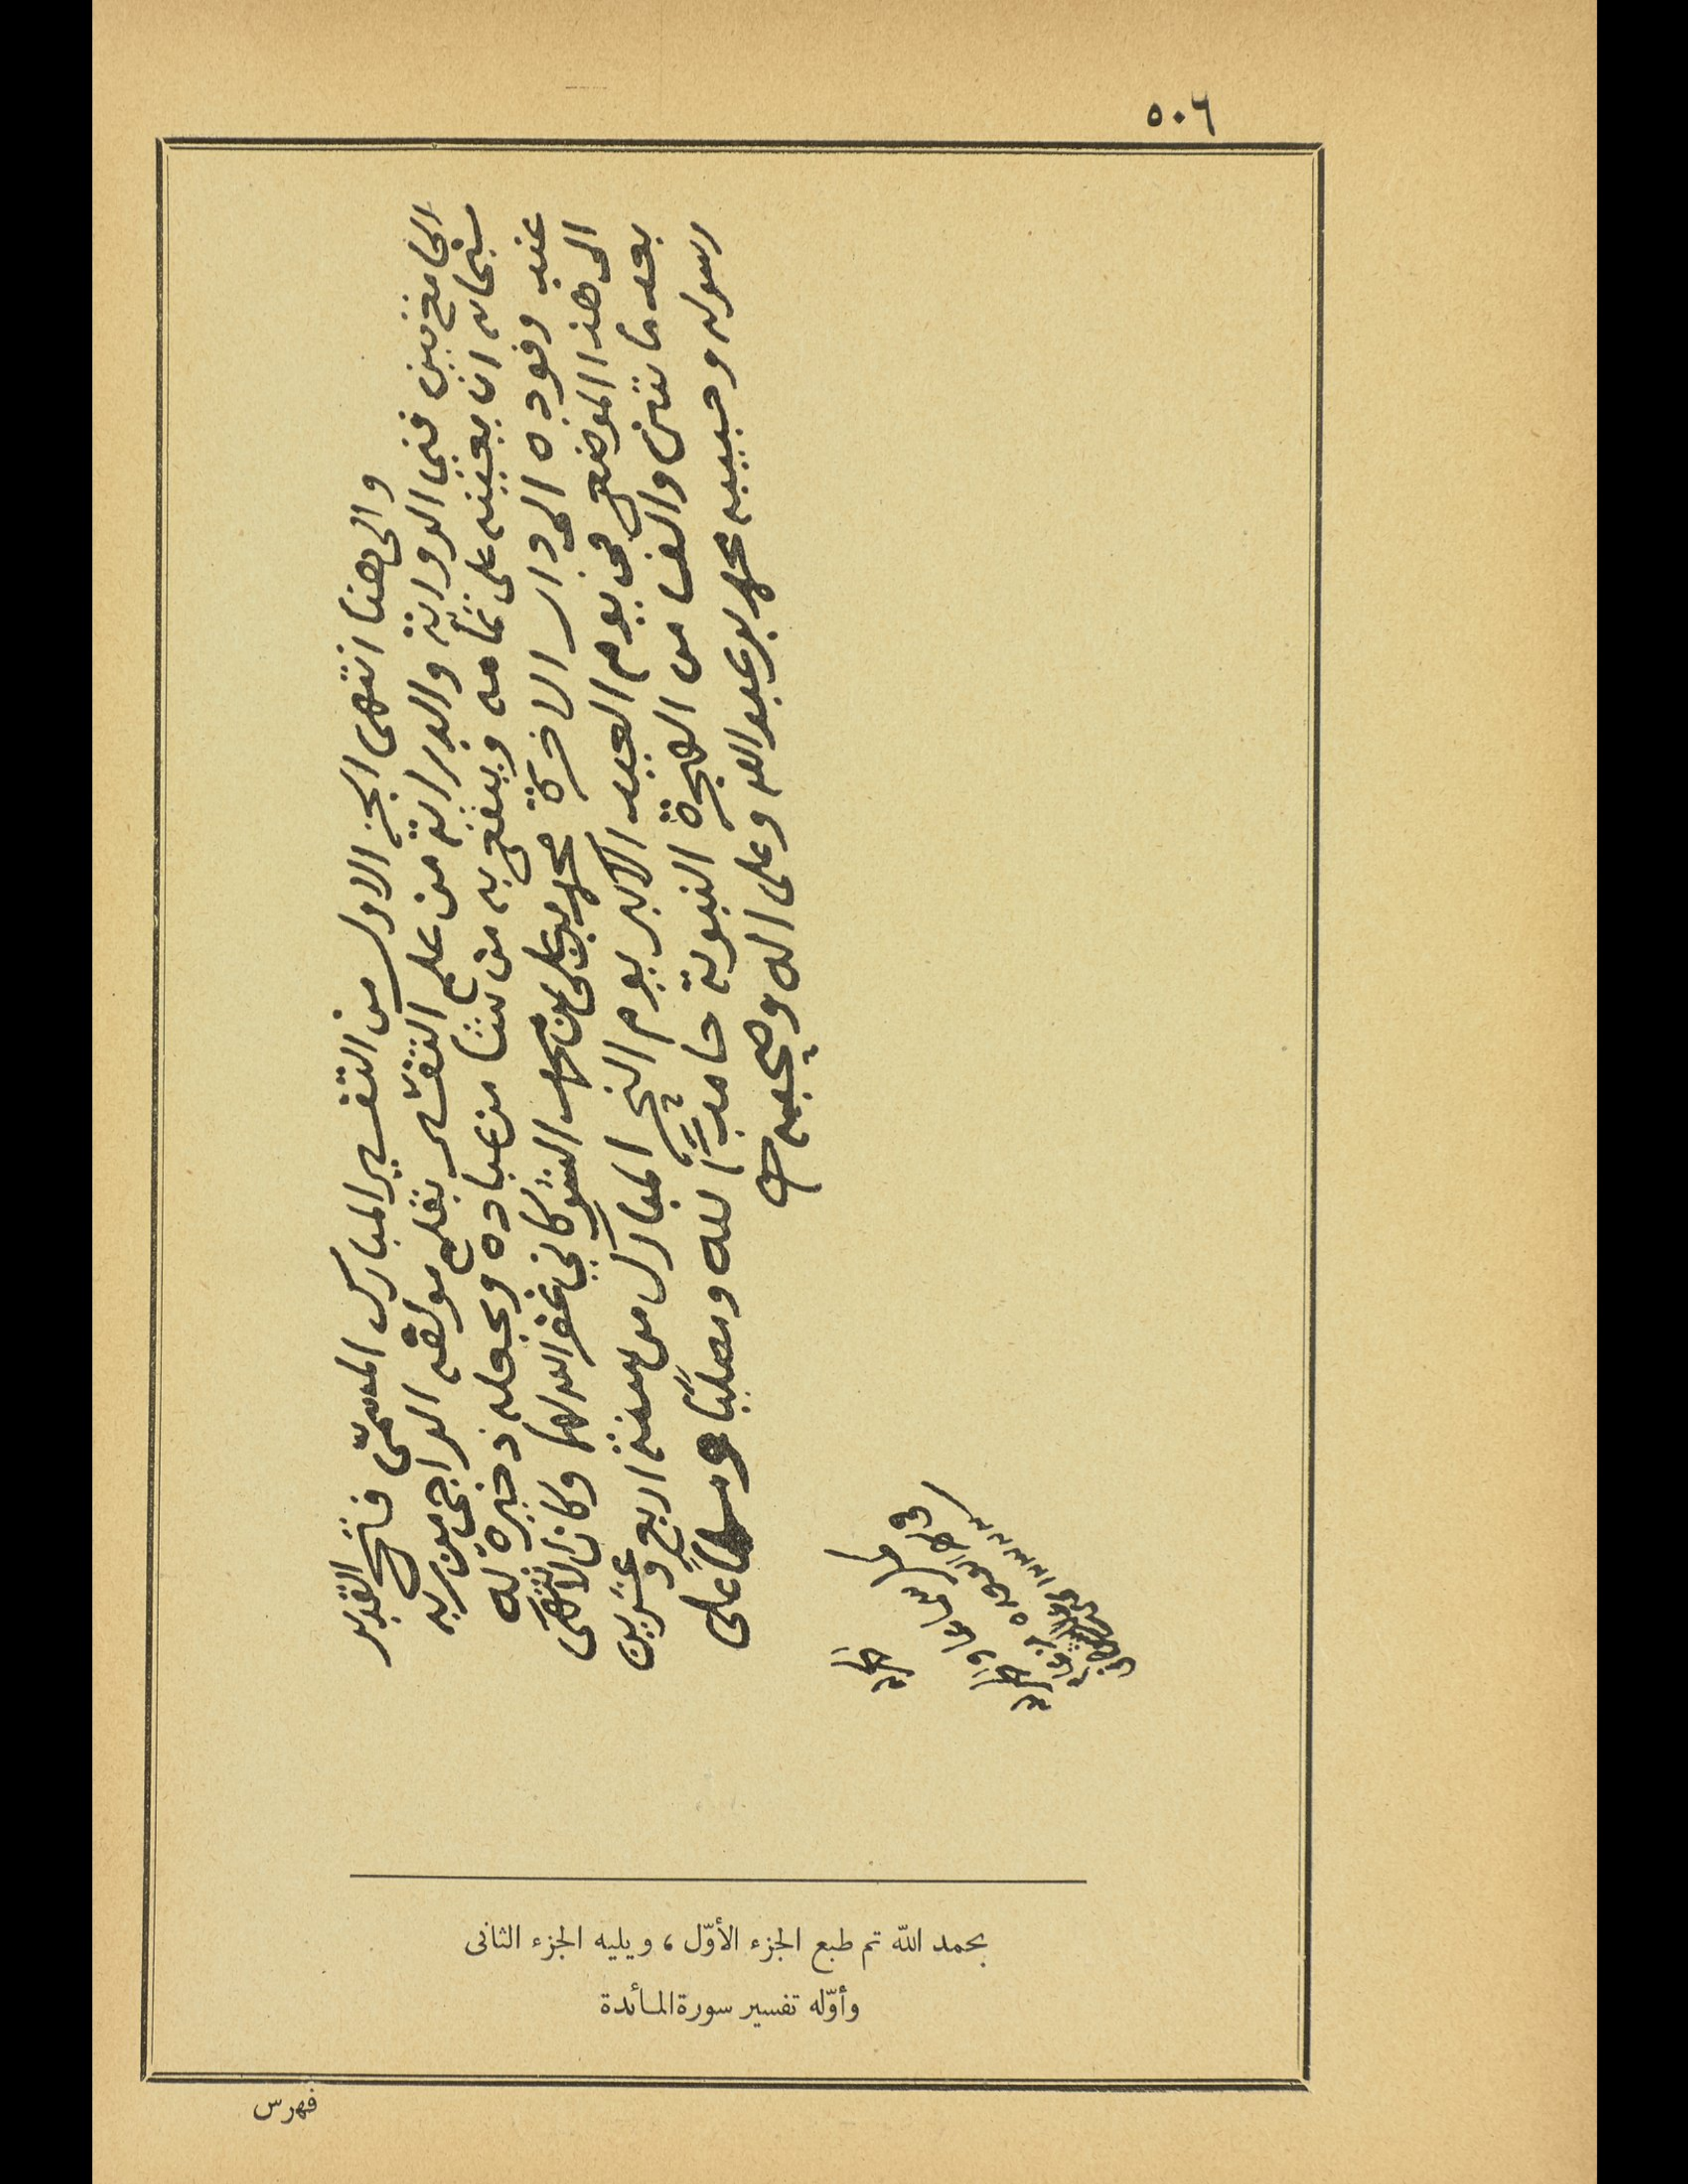 ٥٠٦
والى هنا انتهى الجزء الاول من التفسير المبارك المسمّى فتح القدير
الجامع بين فني الرواية والدراية من علم التفسير بقلم مولفه الراجي من ربه
سبحانه ان يعينه على تمامه وينفع به من شا من عباده ويجعله ذخيرة له
عند وفوده الى دار الاخرة محمد بن علي بن محمد الشوكاني غفر الله لهما وكان الانتهى
الى هذا الموضع في يوم العيد الاكبر يوم النحر المبارك من سنة اربع وعشرين
بعد مائتين والف من الهجرة النبوية حامدًا لله ومصليًا ومسلمًا على
رسوله وحبيبه محمد بن عبد الله وعلى اله وصحبه
بحمد الله تم طبع الجزء الأوّل ، ويليه الجزء الثانى
وأوّله تفسير سورة المائدة
فهرس